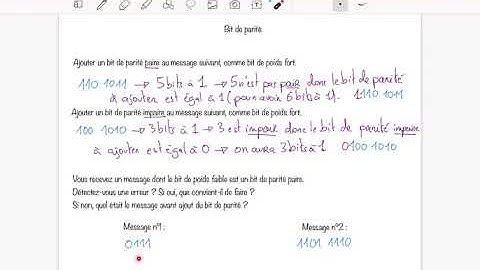 Bit de parité
Ajouter un bit de parité paire au message suivant, comme bit de poids fort.
110 1011 → 5 bits à 1 → 5 n'est pas pair donc le bit de parité
à ajouter est égal à 1 (pour avoir 6 bits à 1). 1110 1011
Ajouter un bit de parité impaire au message suivant, comme bit de poids fort.
100 1010 → 3 bits à 1 → 3 est impair donc le bit de parité impaire
à ajouter est égal à 0 → on aura 3 bits à 1 0100 1010
Vous recevez un message dont le bit de poids faible est un bit de parité paire.
Détectez-vous une erreur ? Si oui, que convient-il de faire ?
Si non, quel était le message avant ajout du bit de parité ?
Message n°1 : Message n°2 :
0111 1101 1110